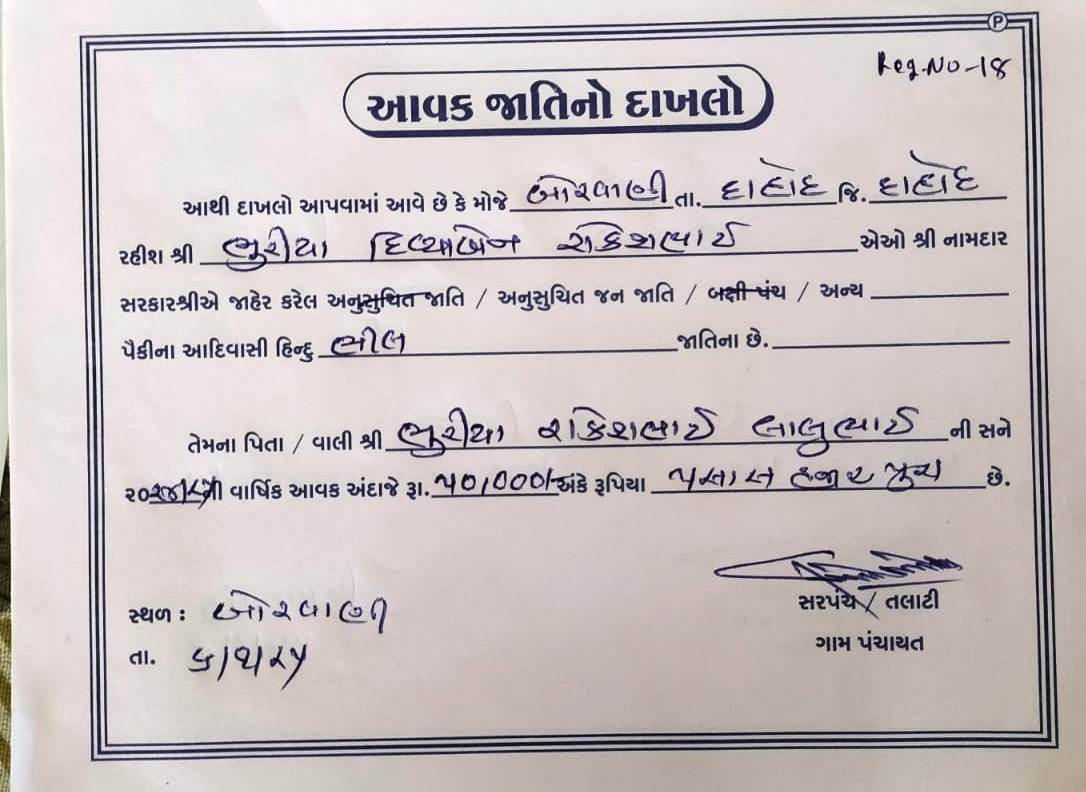 P
Reg.No-18
આવક જાતિનો દાખલો
આથી દાખલો આપવામાં આવે છે કે મોજે બોરવાણી તા. દાહોદ જિ. દાહોદ
રહીશ શ્રી ભુરીયા દિવ્યાબેન રાકેશભાઈ એઓ શ્રી નામદાર
સરકારશ્રીએ જાહેર કરેલ અનુસુચિત જાતિ / અનુસુચિત જન જાતિ / બક્ષી પંચ / અન્ય
પૈકીના આદિવાસી હિન્દુ ભીલ જાતિના છે.
તેમના પિતા / વાલી શ્રી ભુરીયા રાકેશભાઈ લાલુભાઈ ની સને
૨૦૨૪/૨૫ની વાર્ષિક આવક અંદાજે રૂા. ૫૦,૦૦૦/- અંકે રૂપિયા પચાસ હજાર પુરા છે.
સરપંચ / તલાટી
ગામ પંચાયત
સ્થળ : બોરવાણી
તા.